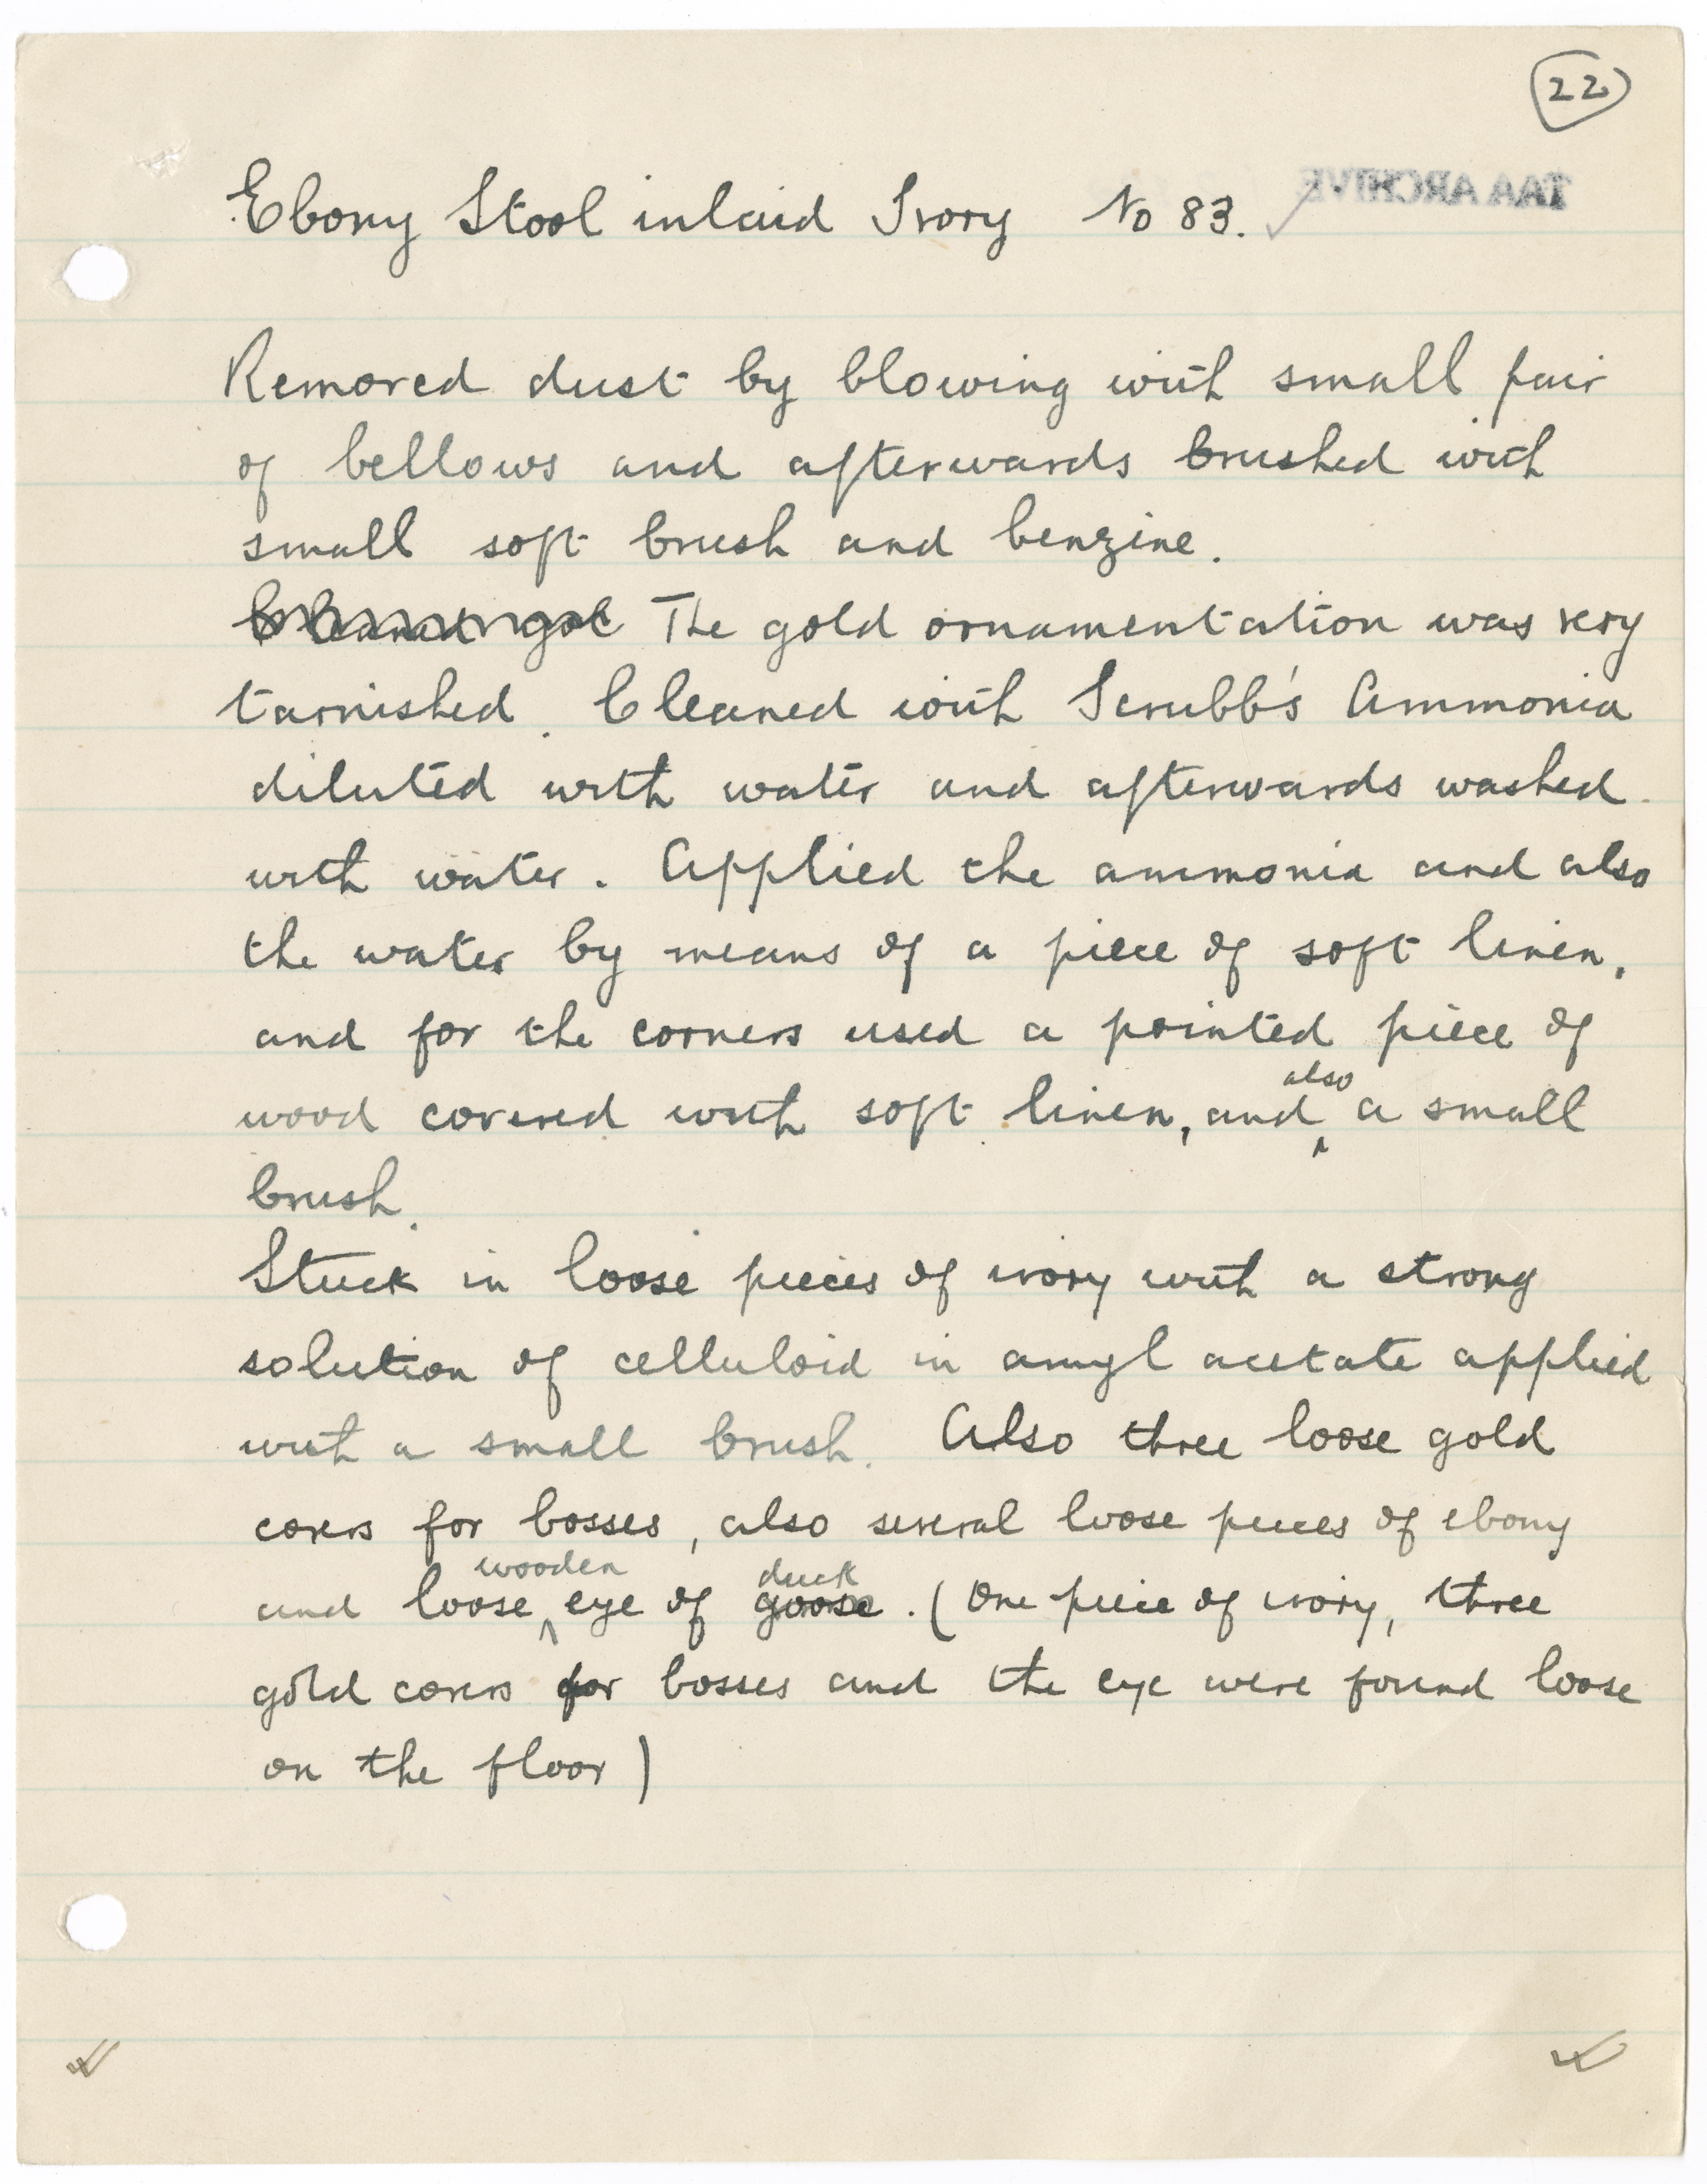 22
Ebony Stool inlaid Ivory No 83.
TAA ARCHIVE
Removed dust by blowing with small pair
of bellows and afterwards brushed with
small soft brush and benzine.
Cleaned gol The gold ornamentation was very
tarnished. Cleaned with Scrubb's Ammonia
diluted with water and afterwards washed
with water. Applied the ammonia and also
the water by means of a piece of soft linen,
and for the corners used a pointed piece of
also
wood covered with soft linen, and a small
brush.
Stuck in loose pieces of ivory with a strong
solution of celluloid in amyl acetate applied
with a small brush. Also three loose gold
covers for bosses, also several loose pieces of ebony
wooden duck
and loose eye of goose. (One piece of ivory, three
gold covers for bosses and the eye were found loose
on the floor)